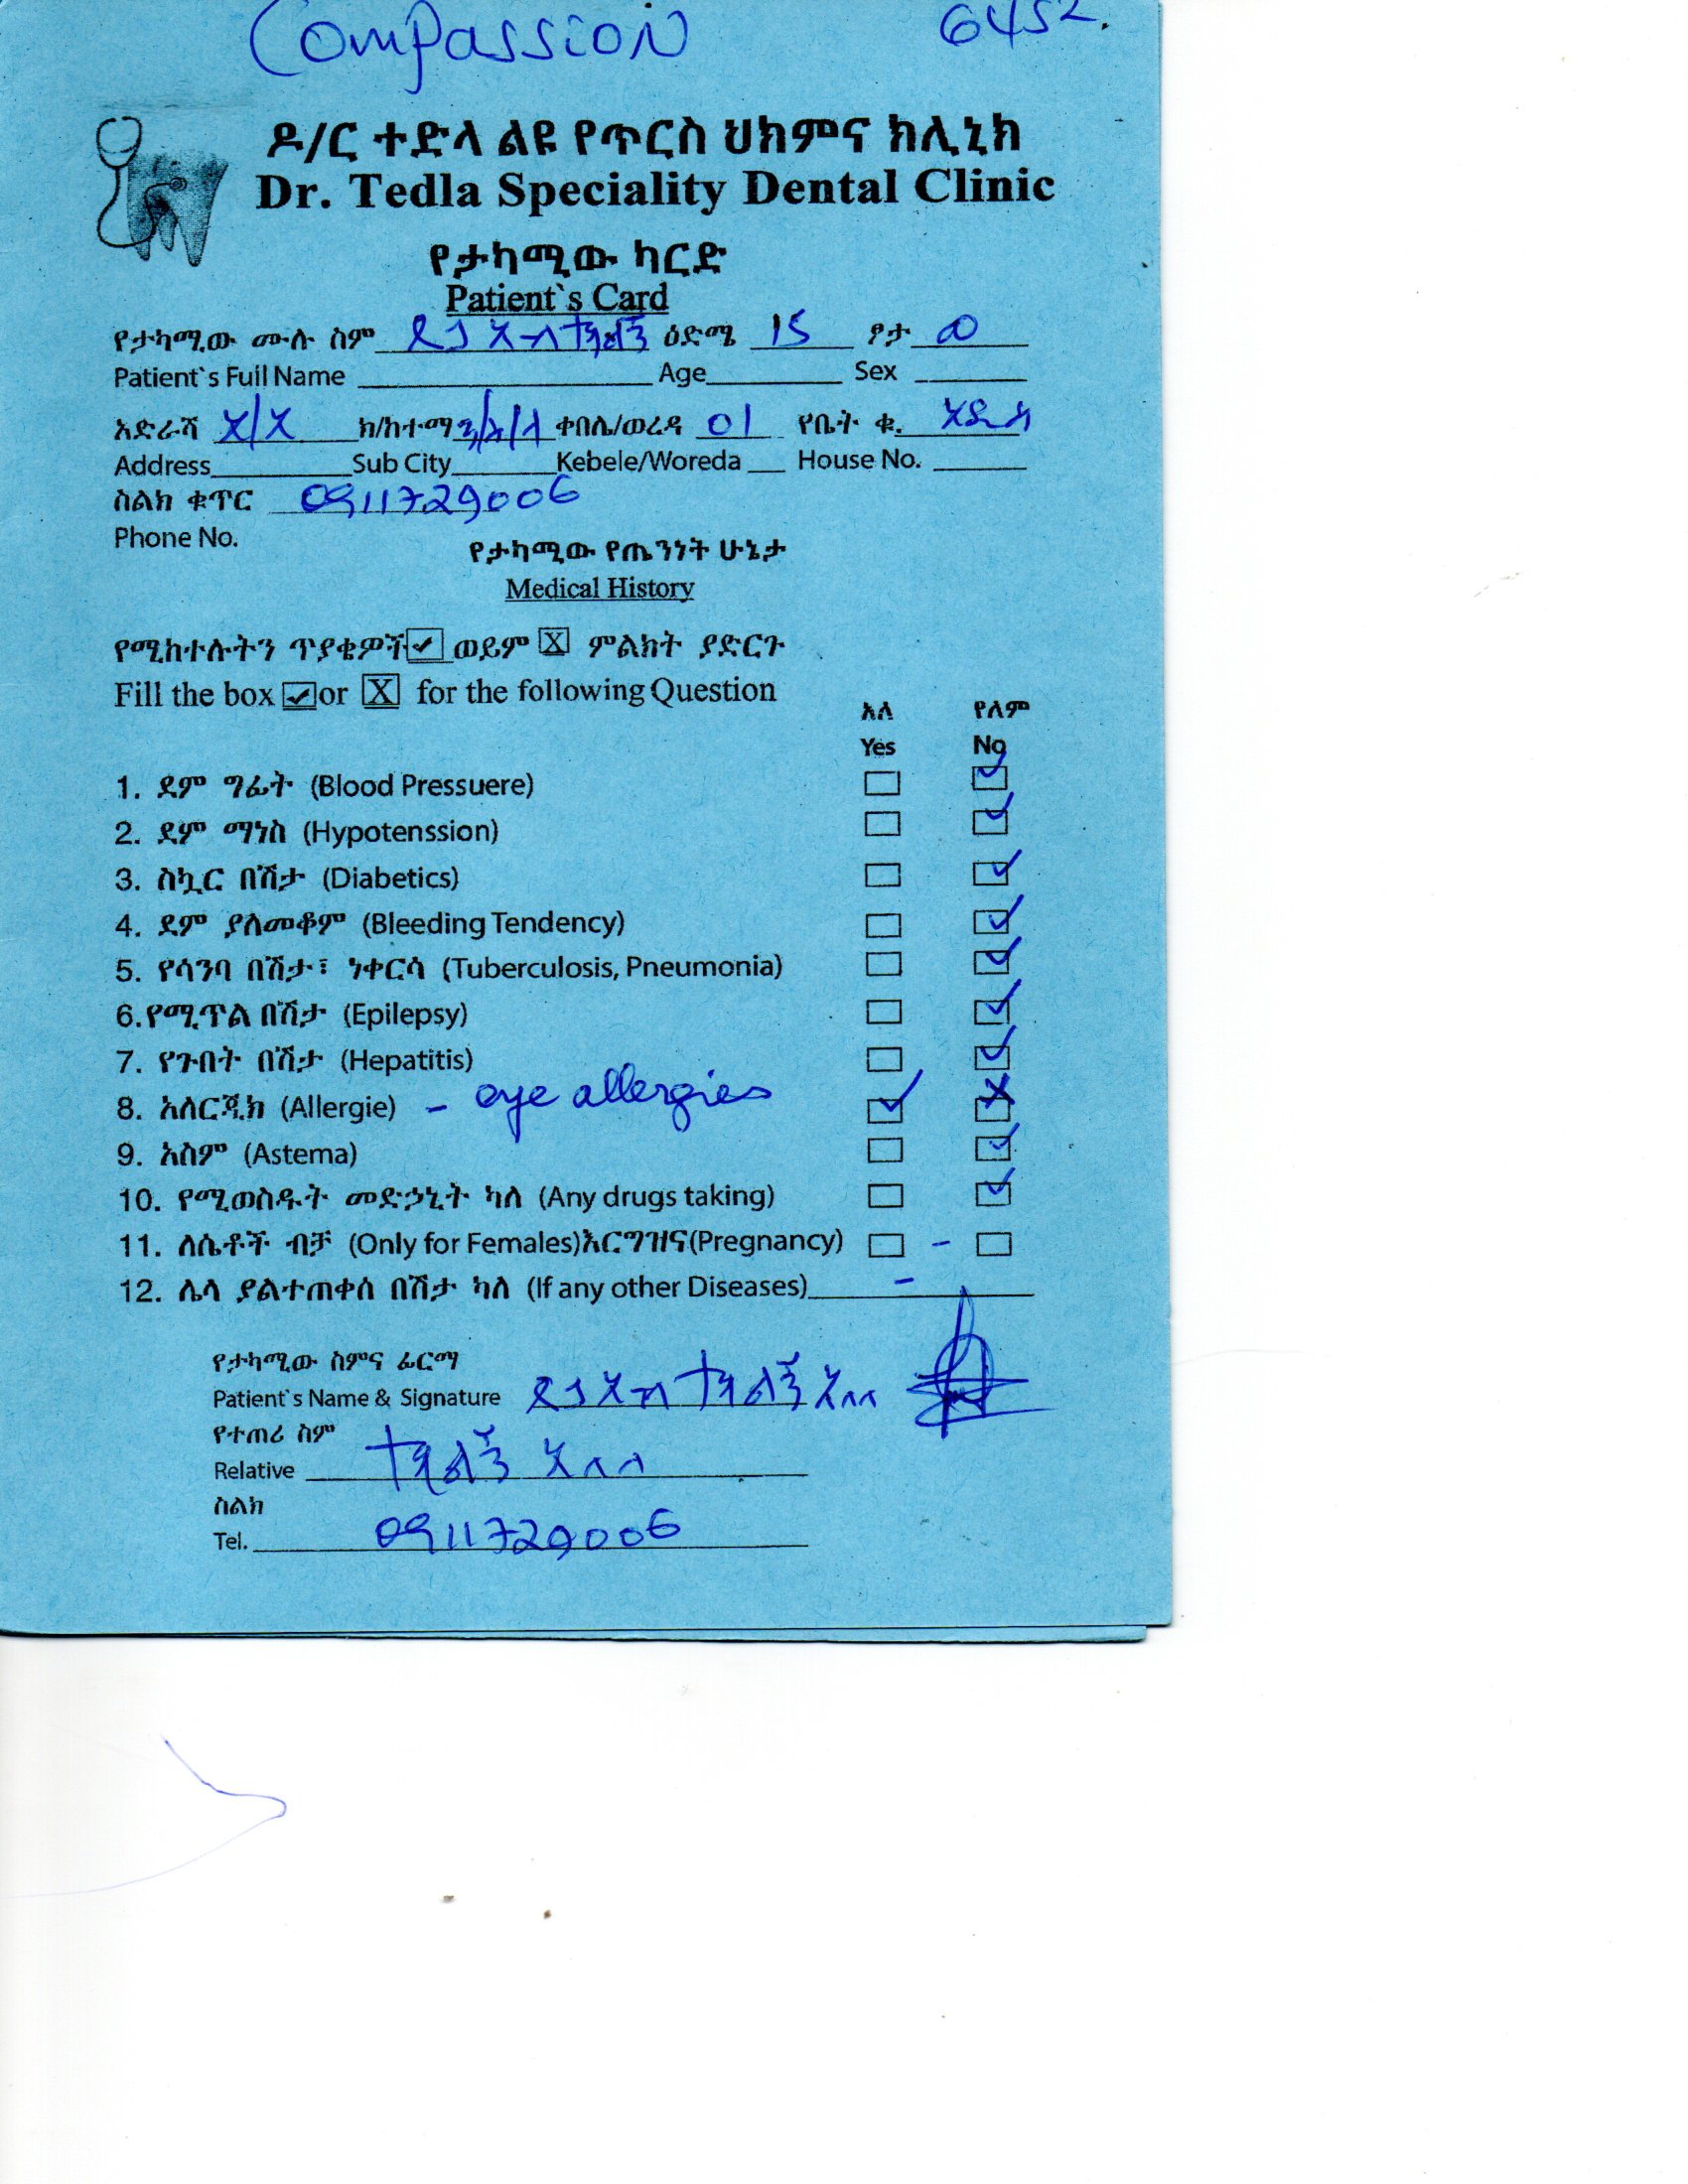 Compassion 6452.
ዶ/ር ተድላ ልዩ የጥርስ ህክምና ክሊኒክ
Dr. Tedla Speciality Dental Clinic
የታካሚው ካርድ
Patient`s Card
የታካሚው ሙሉ ስም ዕድሜ 15 ፆታ ወ
Patient`s Full Name Age Sex
አድራሻ አ/አ ክ/ከተማ ን/ስ/ላ ቀበሌ/ወረዳ 01 የቤት ቁ. አዲስ
Address Sub City Kebele/Woreda House No.
ስልክ ቁጥር 0911729006
Phone No.
የታካሚው የጤንነት ሁኔታ
Medical History
የሚከተሉትን ጥያቄዎች ✓ ወይም X ምልክት ያድርጉ
Fill the box ✓ or X for the following Question
አለ የለም
Yes No
1. ደም ግፊት (Blood Pressuere) ✓
2. ደም ማነስ (Hypotenssion) ✓
3. ስኳር በሽታ (Diabetics) ✓
4. ደም ያለመቆም (Bleeding Tendency) ✓
5. የሳንባ በሽታ፣ ነቀርሳ (Tuberculosis, Pneumonia) ✓
6.የሚጥል በሽታ (Epilepsy) ✓
7. የጉበት በሽታ (Hepatitis) ✓
8. አለርጂክ (Allergie) - eye allergies ✓ X
9. አስም (Astema) ✓
10. የሚወስዱት መድኃኒት ካለ (Any drugs taking) ✓
11. ለሴቶች ብቻ (Only for Females)እርግዝና(Pregnancy) -
12. ሌላ ያልተጠቀሰ በሽታ ካለ (If any other Diseases) -
የታካሚው ስምና ፊርማ
Patient`s Name & Signature
የተጠሪ ስም
Relative
ስልክ
Tel. 0911729006